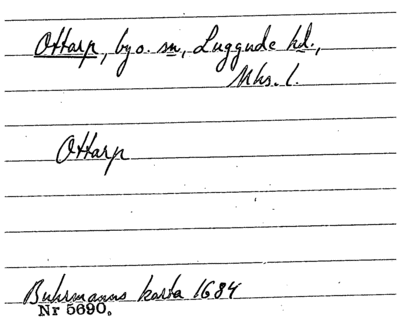 Ottarp, by o. sn, Luggude hd.,
Mhs. l.
Ottarp
Buhrmanns karta 1684
Nr 5690.